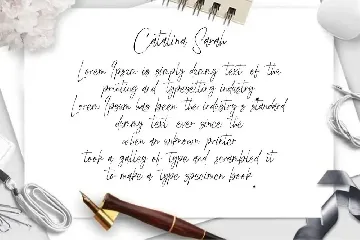 Catalina Sarah
Lorem Ipsum is simply dummy text of the
printing and typesetting industry
Lorem Ipsum has been the industry's standard
dummy text ever since the
when an unknown printer
took a galley of type and scrambled it
to make a type specimen book.